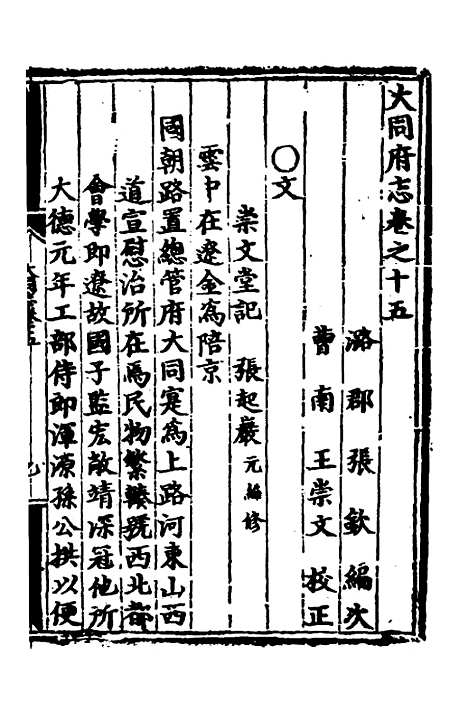 大同府志卷之十五
潞郡張欽編次
曹南王崇文校正
○文
崇文堂記 張起巖元編修
雲中在遼金為陪京
國朝路置總管府大同寔為上路河東山西
道宣慰治所在焉民物繁夥號西北都
會學即遼故國子監宏敞靖深冠他所
大德元年工部侍郎渾源孫公拱以便